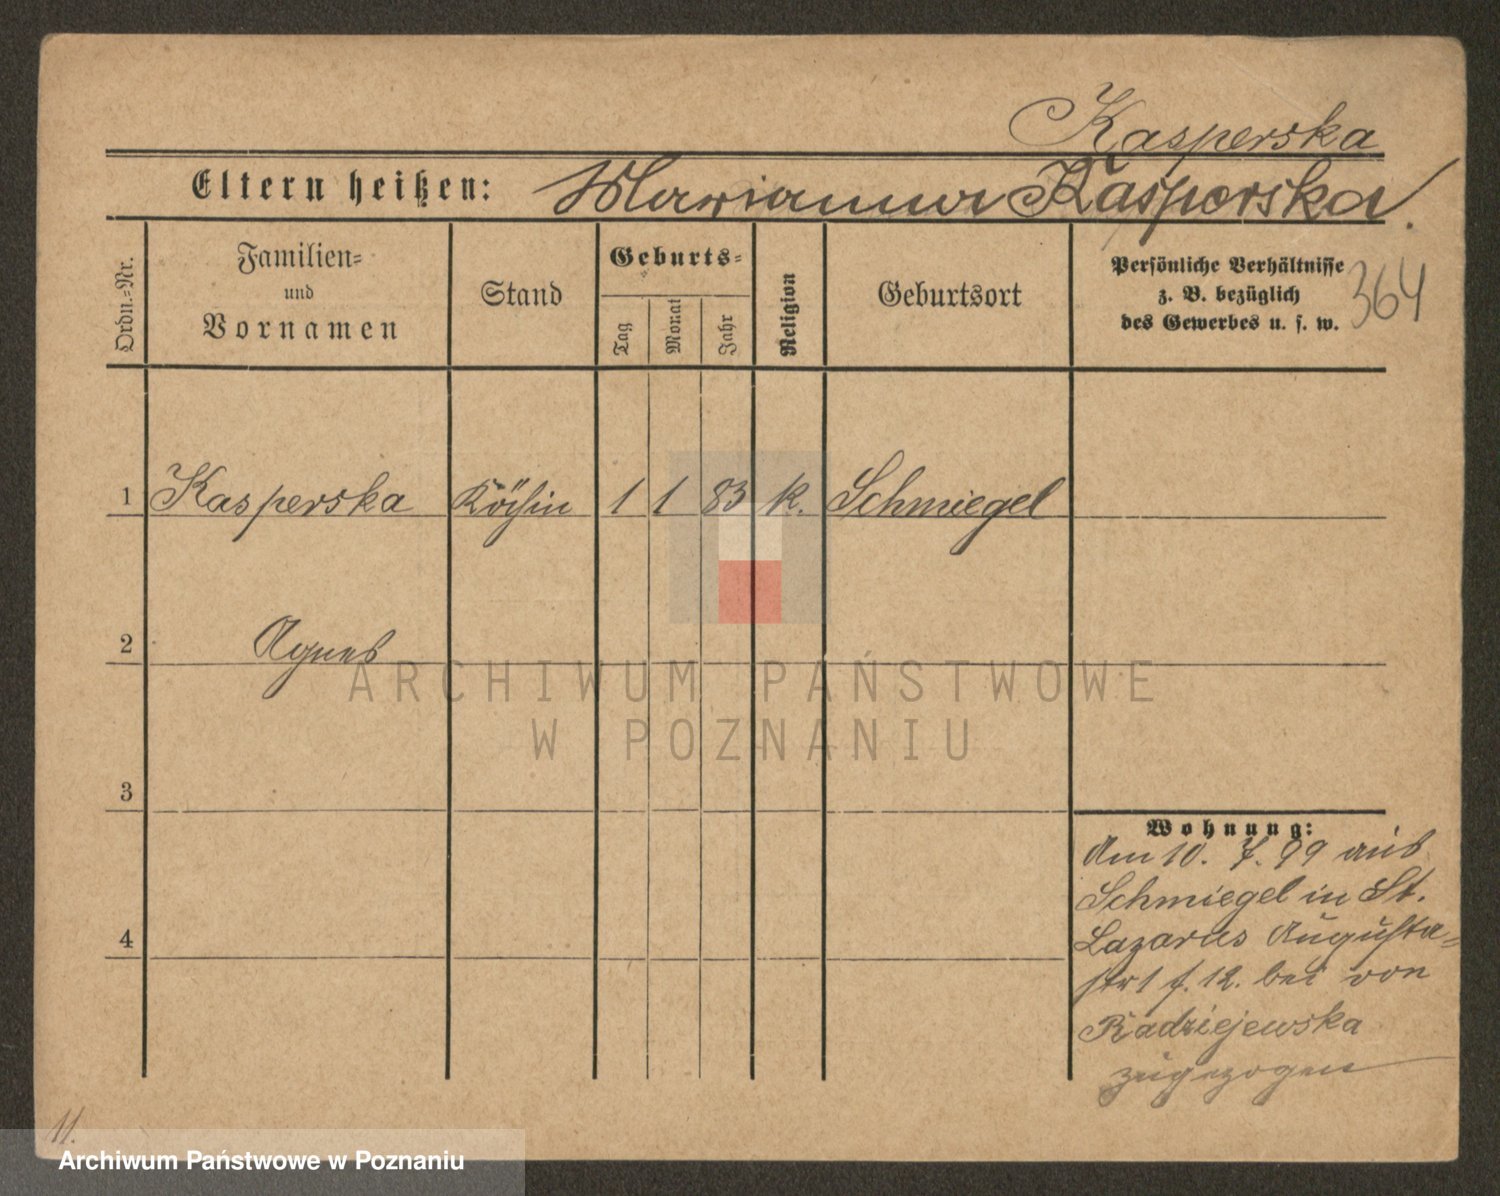 Kasperska
Eltern heißen: Marianna Kasperska.
Ordn.-Nr.
Familien-
und
Vornamen
Stand
Geburts-
Tag
Monat
Jahr
Religion
Geburtsort
Persönliche Verhältnisse
z. B. bezüglich
des Gewerbes u. s. w.
364
1 Kasperska Köchin 1 1 83 k. Schmiegel
2 Agnes
ARCHIWUM PAŃSTWOWE
W POZNANIU
3
4
Wohnung:
Am 10. 7. 99 aus
Schmiegel in St.
Lazarus Augusta-
str 12. bei von
Radziejewska
zugezogen
11.
Archiwum Państwowe w Poznaniu